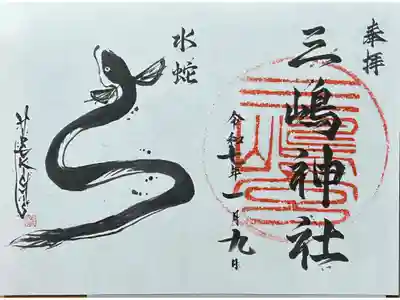 奉拝
三嶋神社
令和七年一月九日
水蛇